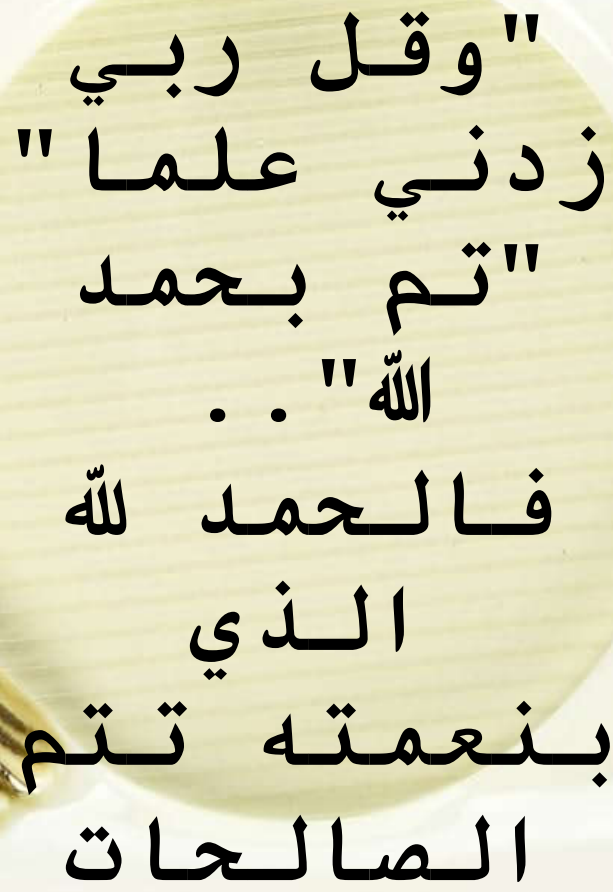 "وقل ربي
زدني علما"
"تم بحمد
الله"..
فالحمد لله
الذي
بنعمته تتم
الصالحات